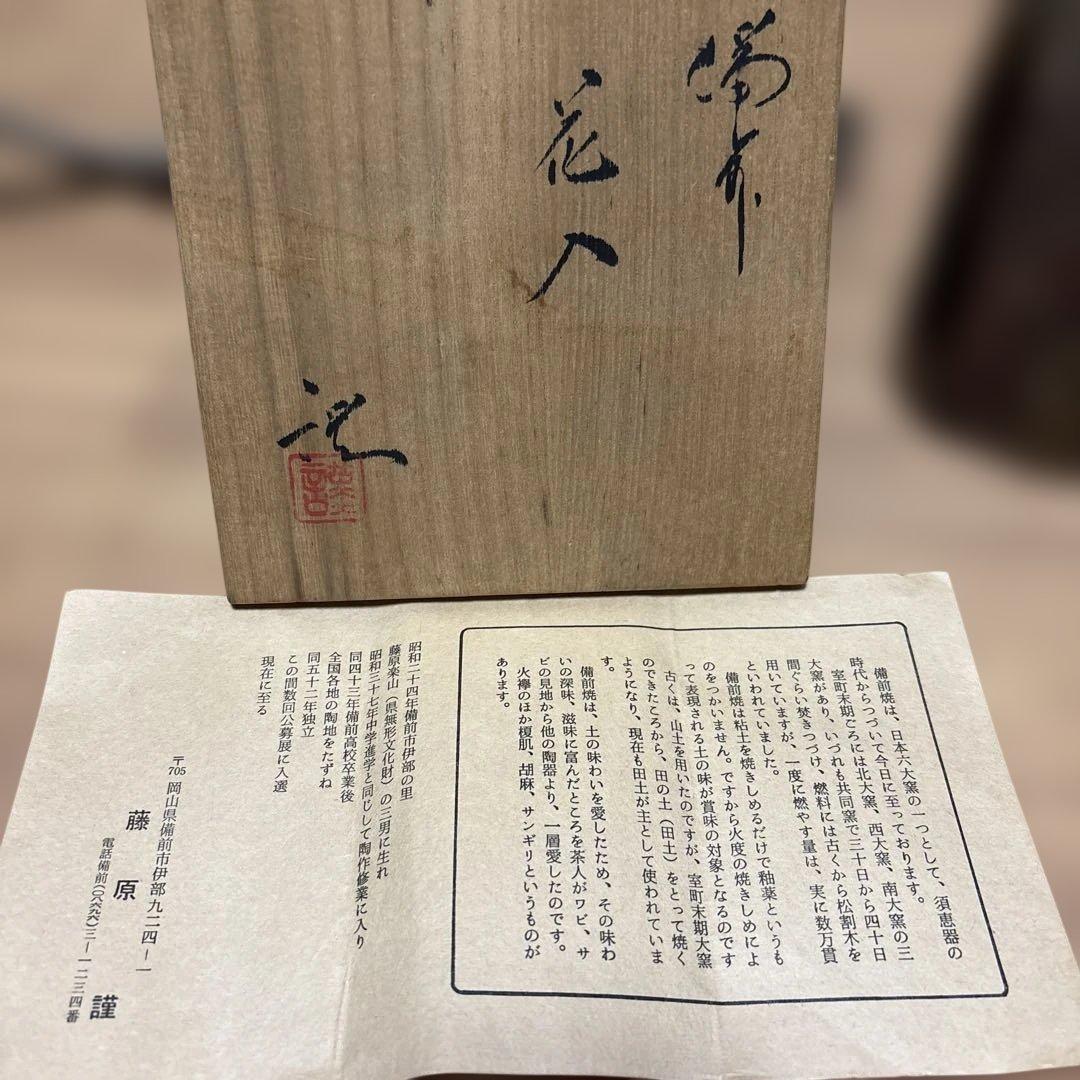 備前
花入
謹
備前焼は、日本六大窯の一つとして、須恵器の
時代からつづいて今日に至っております。
室町末期ごろには北大窯、西大窯、南大窯の三
大窯があり、いづれも共同窯で三十日から四十日
間ぐらい焚きつづけ、燃料には古くから松割木を
用いていますが、一度に燃やす量は、実に数万貫
といわれていました。
備前焼は粘土を焼きしめるだけで釉薬というも
のをつかいません。ですから火度の焼きしめによ
って表現される土の味が賞味の対象となるのです
古くは、山土を用いたのですが、室町末期大窯
のできたころから、田の土（田土）をとって焼く
ようになり、現在も田土が主として使われていま
す。
備前焼は、土の味わいを愛したため、その味わ
いの深味、滋味に富んだところを茶人がワビ、サ
ビの見地から他の陶器より、一層愛したのです。
火襷のほか榎肌、胡麻、サンギリというものが
あります。
昭和二十四年備前市伊部の里
藤原楽山（県無形文化財）の三男に生れ
昭和三十七年中学進学と同じして陶作修業に入り
同四十三年備前高校卒業後
全国各地の陶地をたずね
同五十二年独立
この間数回公募展に入選
現在に至る
〒705 岡山県備前市伊部九二四－一
藤原 謹
電話備前(八六九六)三－一二三四番